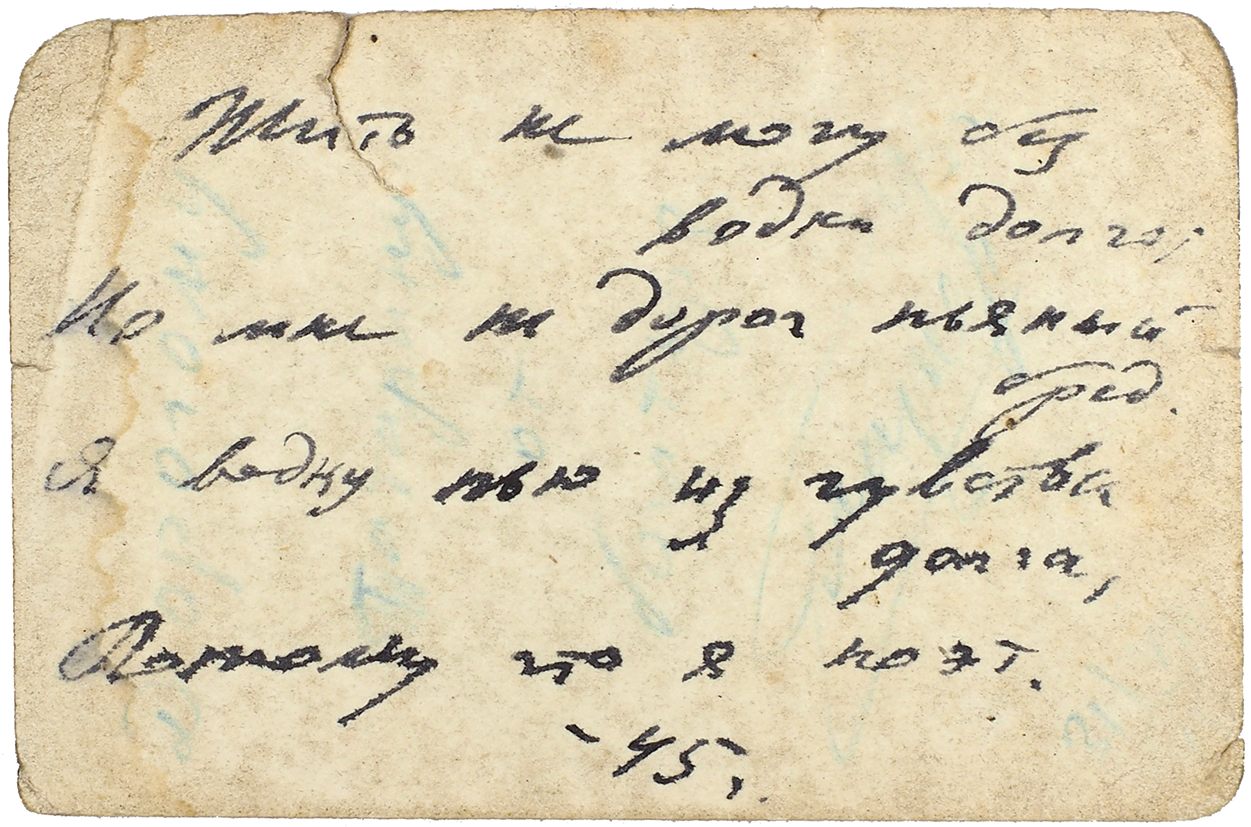 Жить не могу без
водки долго,
Но мне не дорог пьяный
бред.
Я водку пью из чувства
долга,
Потому что я поэт.
-45.